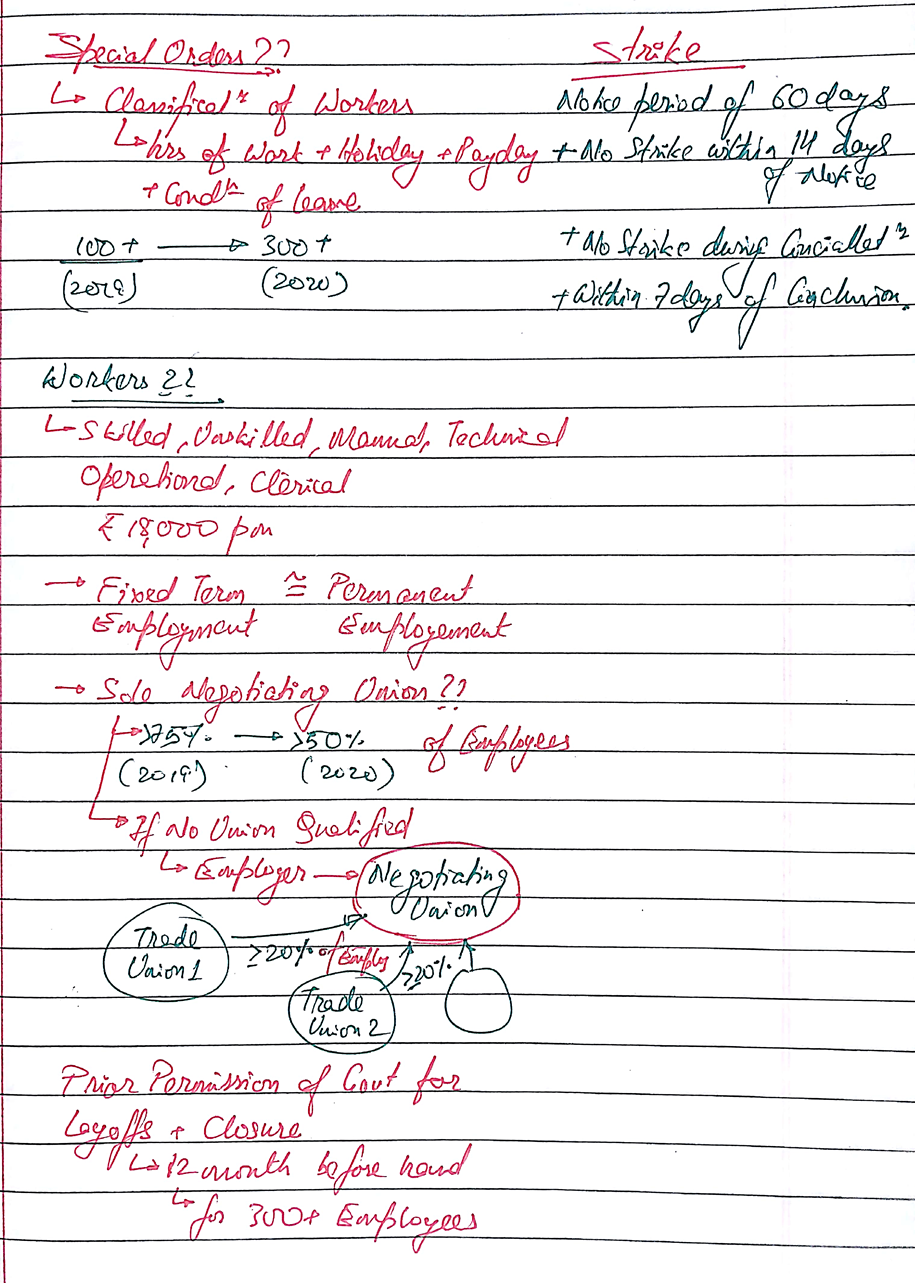 Special Orders ??
↳ Classificatⁿ of Workers
↳ hrs of Work + Holiday + Payday
+ Condⁿ of leave
100+ → 300+
(2019) (2020)
Strike
Notice period of 60 days
+ No Strike within 14 days
of Notice
+ No Strike during Conciallatⁿ
+ Within 7 days of Conclusion.
Workers ??
↳ Skilled, Unskilled, Manual, Technical
Operational, Clerical
₹ 18,000 pm
→ Fixed Term ≅ Permanent
Employment Employement
→ Sole Negotiating Union ??
↳ >75% → >50% of Employees
(2019) (2020)
↳ If No Union Qualified
↳ Employer → Negotiating
Union
Trade
Union 1
≥20% of Employ
≥20%
Trade
Union 2
Prior Permission of Govt for
Layoffs + Closure
↳ 12 month before hand
↳ for 300+ Employees